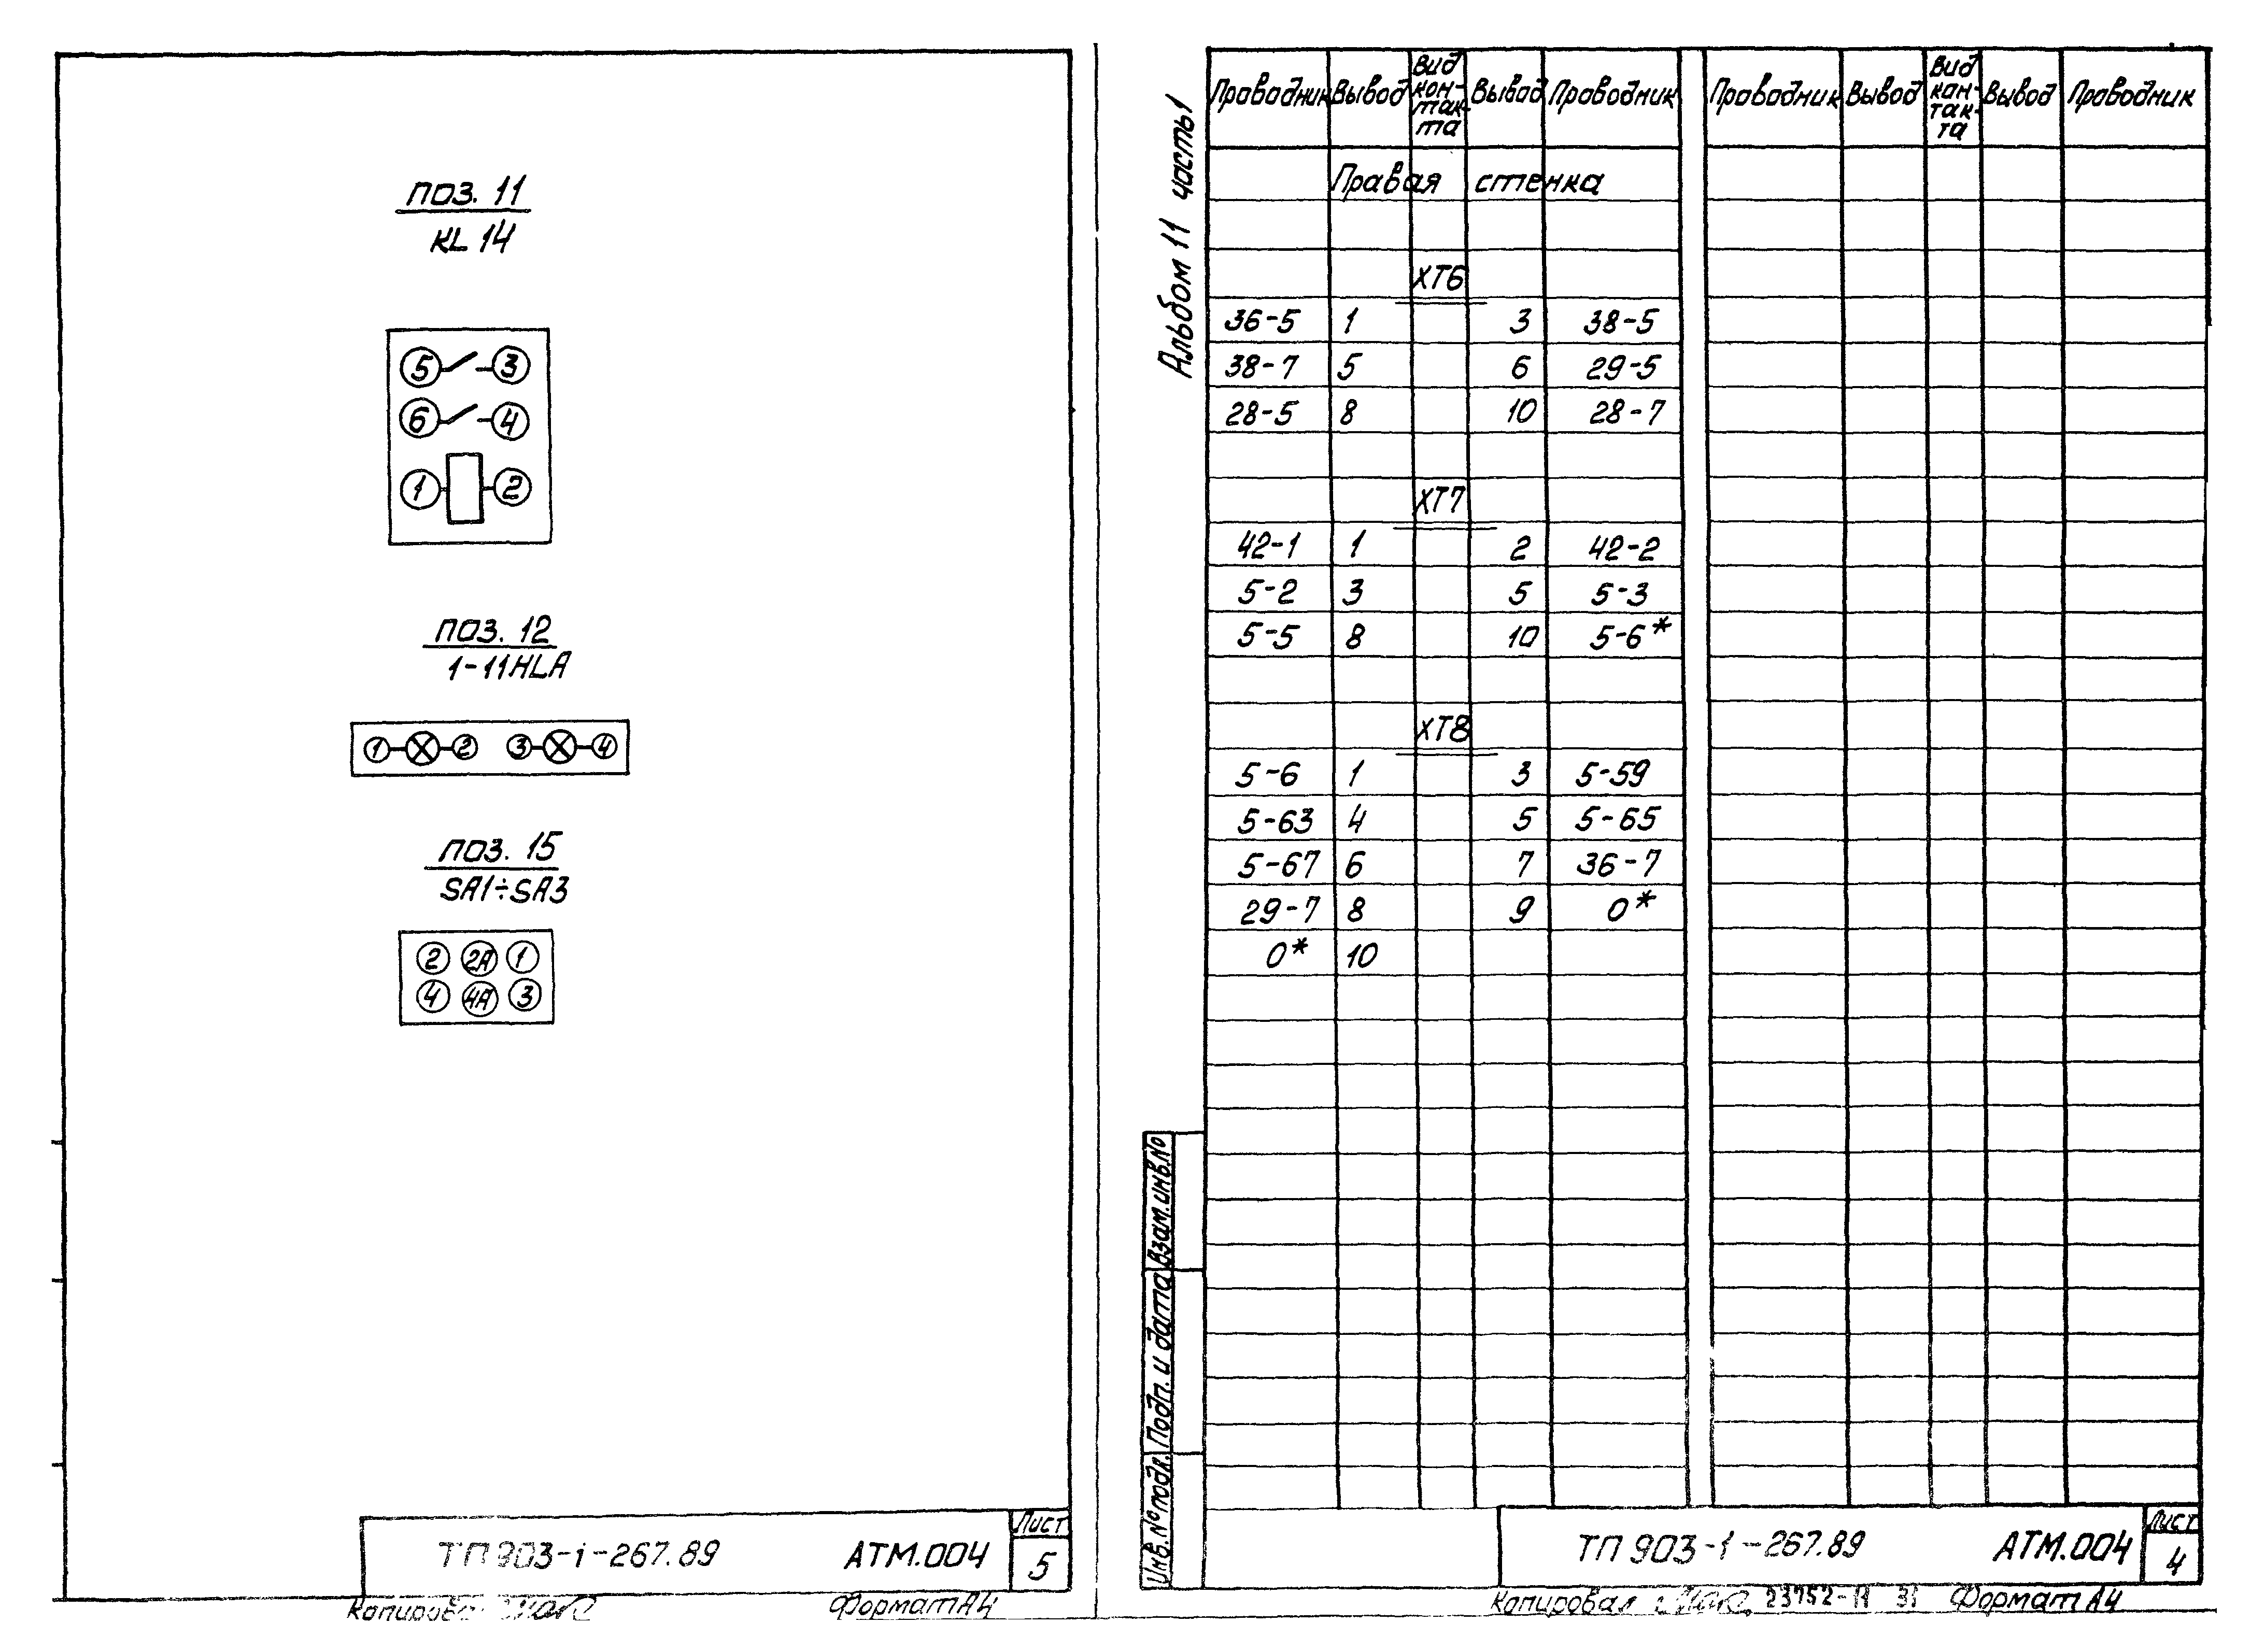 поз. 11
KL 14
5 3
6 4
1 2
поз. 12
1-11HLA
1 2 3 4
поз. 15
SA1÷SA3
2 2A 1
4 4A 3
ТП 903-1-267.89 АТМ.004
Лист
5
Формат А4
Альбом 11 часть 1
Проводник Вывод Вид кон-так-та Вывод Проводник Проводник Вывод Вид кон-так-та Вывод Проводник
Правая стенка
XT6
36-5 1 3 38-5
38-7 5 6 29-5
28-5 8 10 28-7
XT7
42-1 1 2 42-2
5-2 3 5 5-3
5-5 8 10 5-6*
XT8
5-6 1 3 5-59
5-63 4 5 5-65
5-67 6 7 36-7
29-7 8 9 0*
0* 10
Взам.инв.№
Подп. и дата
Инв.№подл.
ТП 903-1-267.89 АТМ.004
Лист
4
Копировал Формат А4